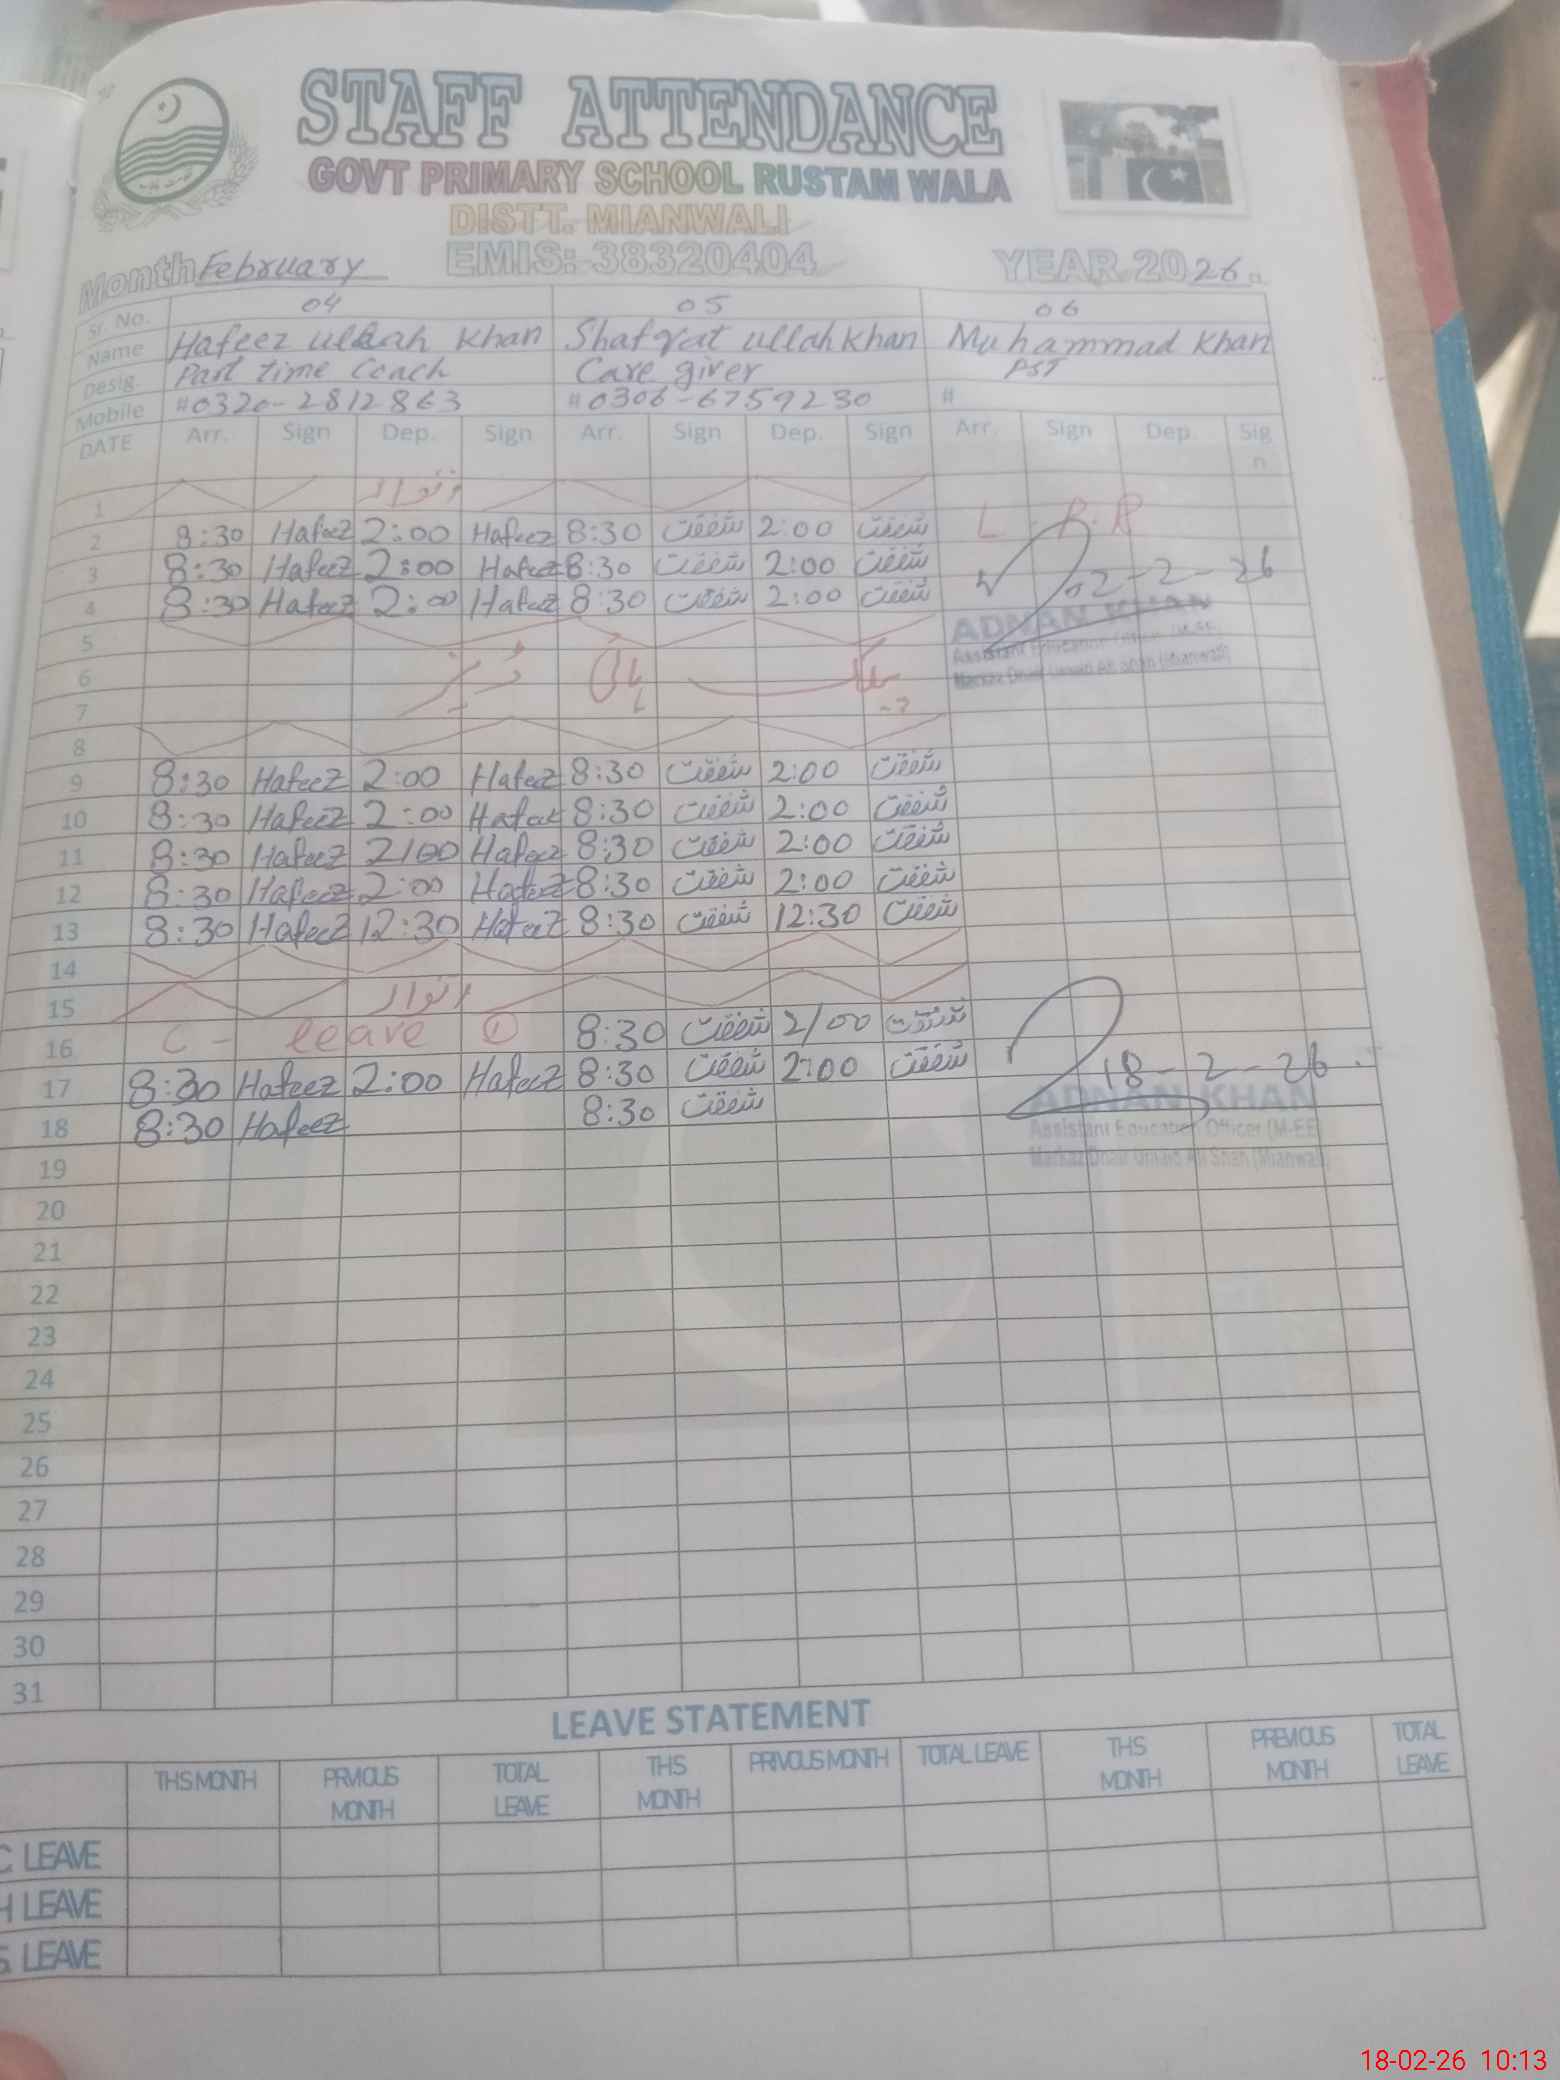 STAFF ATTENDANCE
GOVT PRIMARY SCHOOL RUSTAM WALA
DISTT. MIANWALI
EMIS: 38320404
Month February YEAR 2026
Sr. No. 04 05 06
Name Hafeez ullah Khan Shafqat ullah khan Muhammad Khan
Desig. Part time Coach Care giver PST
Mobile #0320-2812863 #0306-6759230 #
DATE Arr. Sign Dep. Sign Arr. Sign Dep. Sign Arr. Sign Dep. Sign
1 اتوار
2 8:30 Hafeez 2:00 Hafeez 8:30 شفقت 2:00 شفقت L.P.R
3 8:30 Hafeez 2:00 Hafeez 8:30 شفقت 2:00 شفقت 02-2-26
4 8:30 Hafeez 2:00 Hafeez 8:30 شفقت 2:00 شفقت
ADNAN KHAN
Assistant Education Officer (M-EE)
5
6
7
8
9 8:30 Hafeez 2:00 Hafeez 8:30 شفقت 2:00 شفقت
10 8:30 Hafeez 2:00 Hafeez 8:30 شفقت 2:00 شفقت
11 8:30 Hafeez 2/00 Hafeez 8:30 شفقت 2:00 شفقت
12 8:30 Hafeez 2:00 Hafeez 8:30 شفقت 2:00 شفقت
13 8:30 Hafeez 12:30 Hafeez 8:30 شفقت 12:30 شفقت
14
15 اتوار
16 C - leave ① 8:30 شفقت 2/00 شفقت
17 8:30 Hafeez 2:00 Hafeez 8:30 شفقت 2:00 شفقت 18-2-26
18 8:30 Hafeez 8:30 شفقت
ADNAN KHAN
Assistant Education Officer (M-EE)
19
20
21
22
23
24
25
26
27
28
29
30
31
LEAVE STATEMENT
THS MONTH PRVIOUS MONTH TOTAL LEAVE THS MONTH PRIVOUS MONTH TOTAL LEAVE THS MONTH PREVIOUS MONTH TOTAL LEAVE
C. LEAVE
H LEAVE
S. LEAVE
18-02-26 10:13